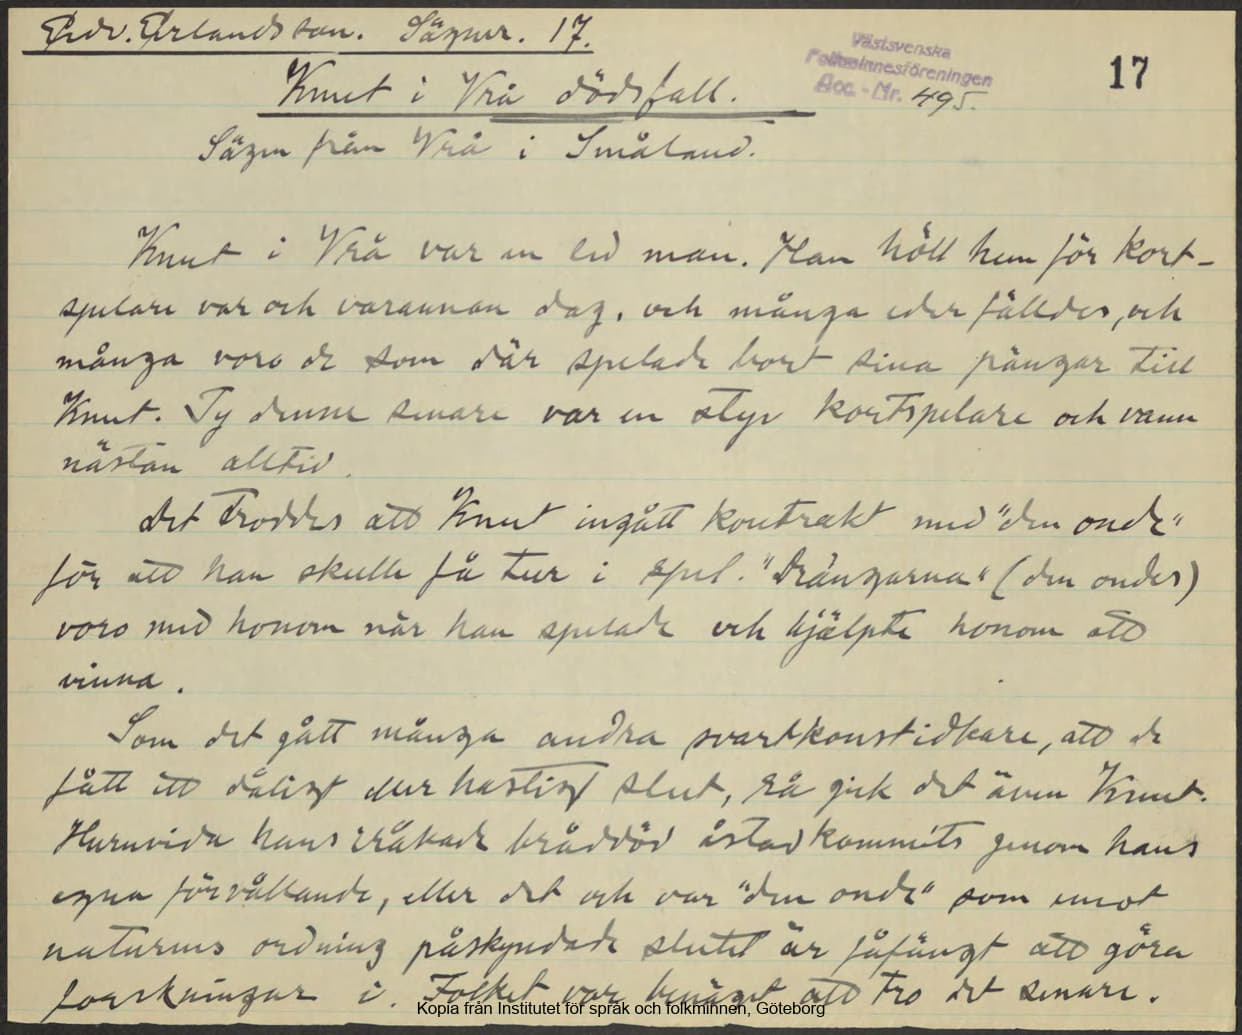 Edv. Erlandsson. Sägner. 17.
Västsvenska
Folkminnesföreningen
Acc.-Nr. 495.
17
Knut i Vrå dödsfall.
Sägen från Vrå i Småland.
Knut i Vrå var en led man. Han höll hem för kort-
spelare var och varannan dag, och många eder fälldes, och
många voro de som där spelade bort sina pängar till
Knut. Ty denne senare var en styv kortspelare och vann
nästan alltid.
Det troddes att Knut ingått kontrakt med "den onde"
för att han skulle få tur i spel. "Drängarna" (den ondes)
voro med honom när han spelade och hjälpte honom att
vinna.
Som det gått många andra svartkonstidkare, att de
fått ett dåligt eller hastigt slut, så gick det även Knut.
Huruvida hans bråddöd åstadkommits genom hans
egna förvållande, eller det och var "den onde" som emot
naturens ordning påskyndade slutet är fåfängt att göra
forskningar i. Folket var benäget att tro det senare.
Kopia från Institutet för språk och folkminnen, Göteborg